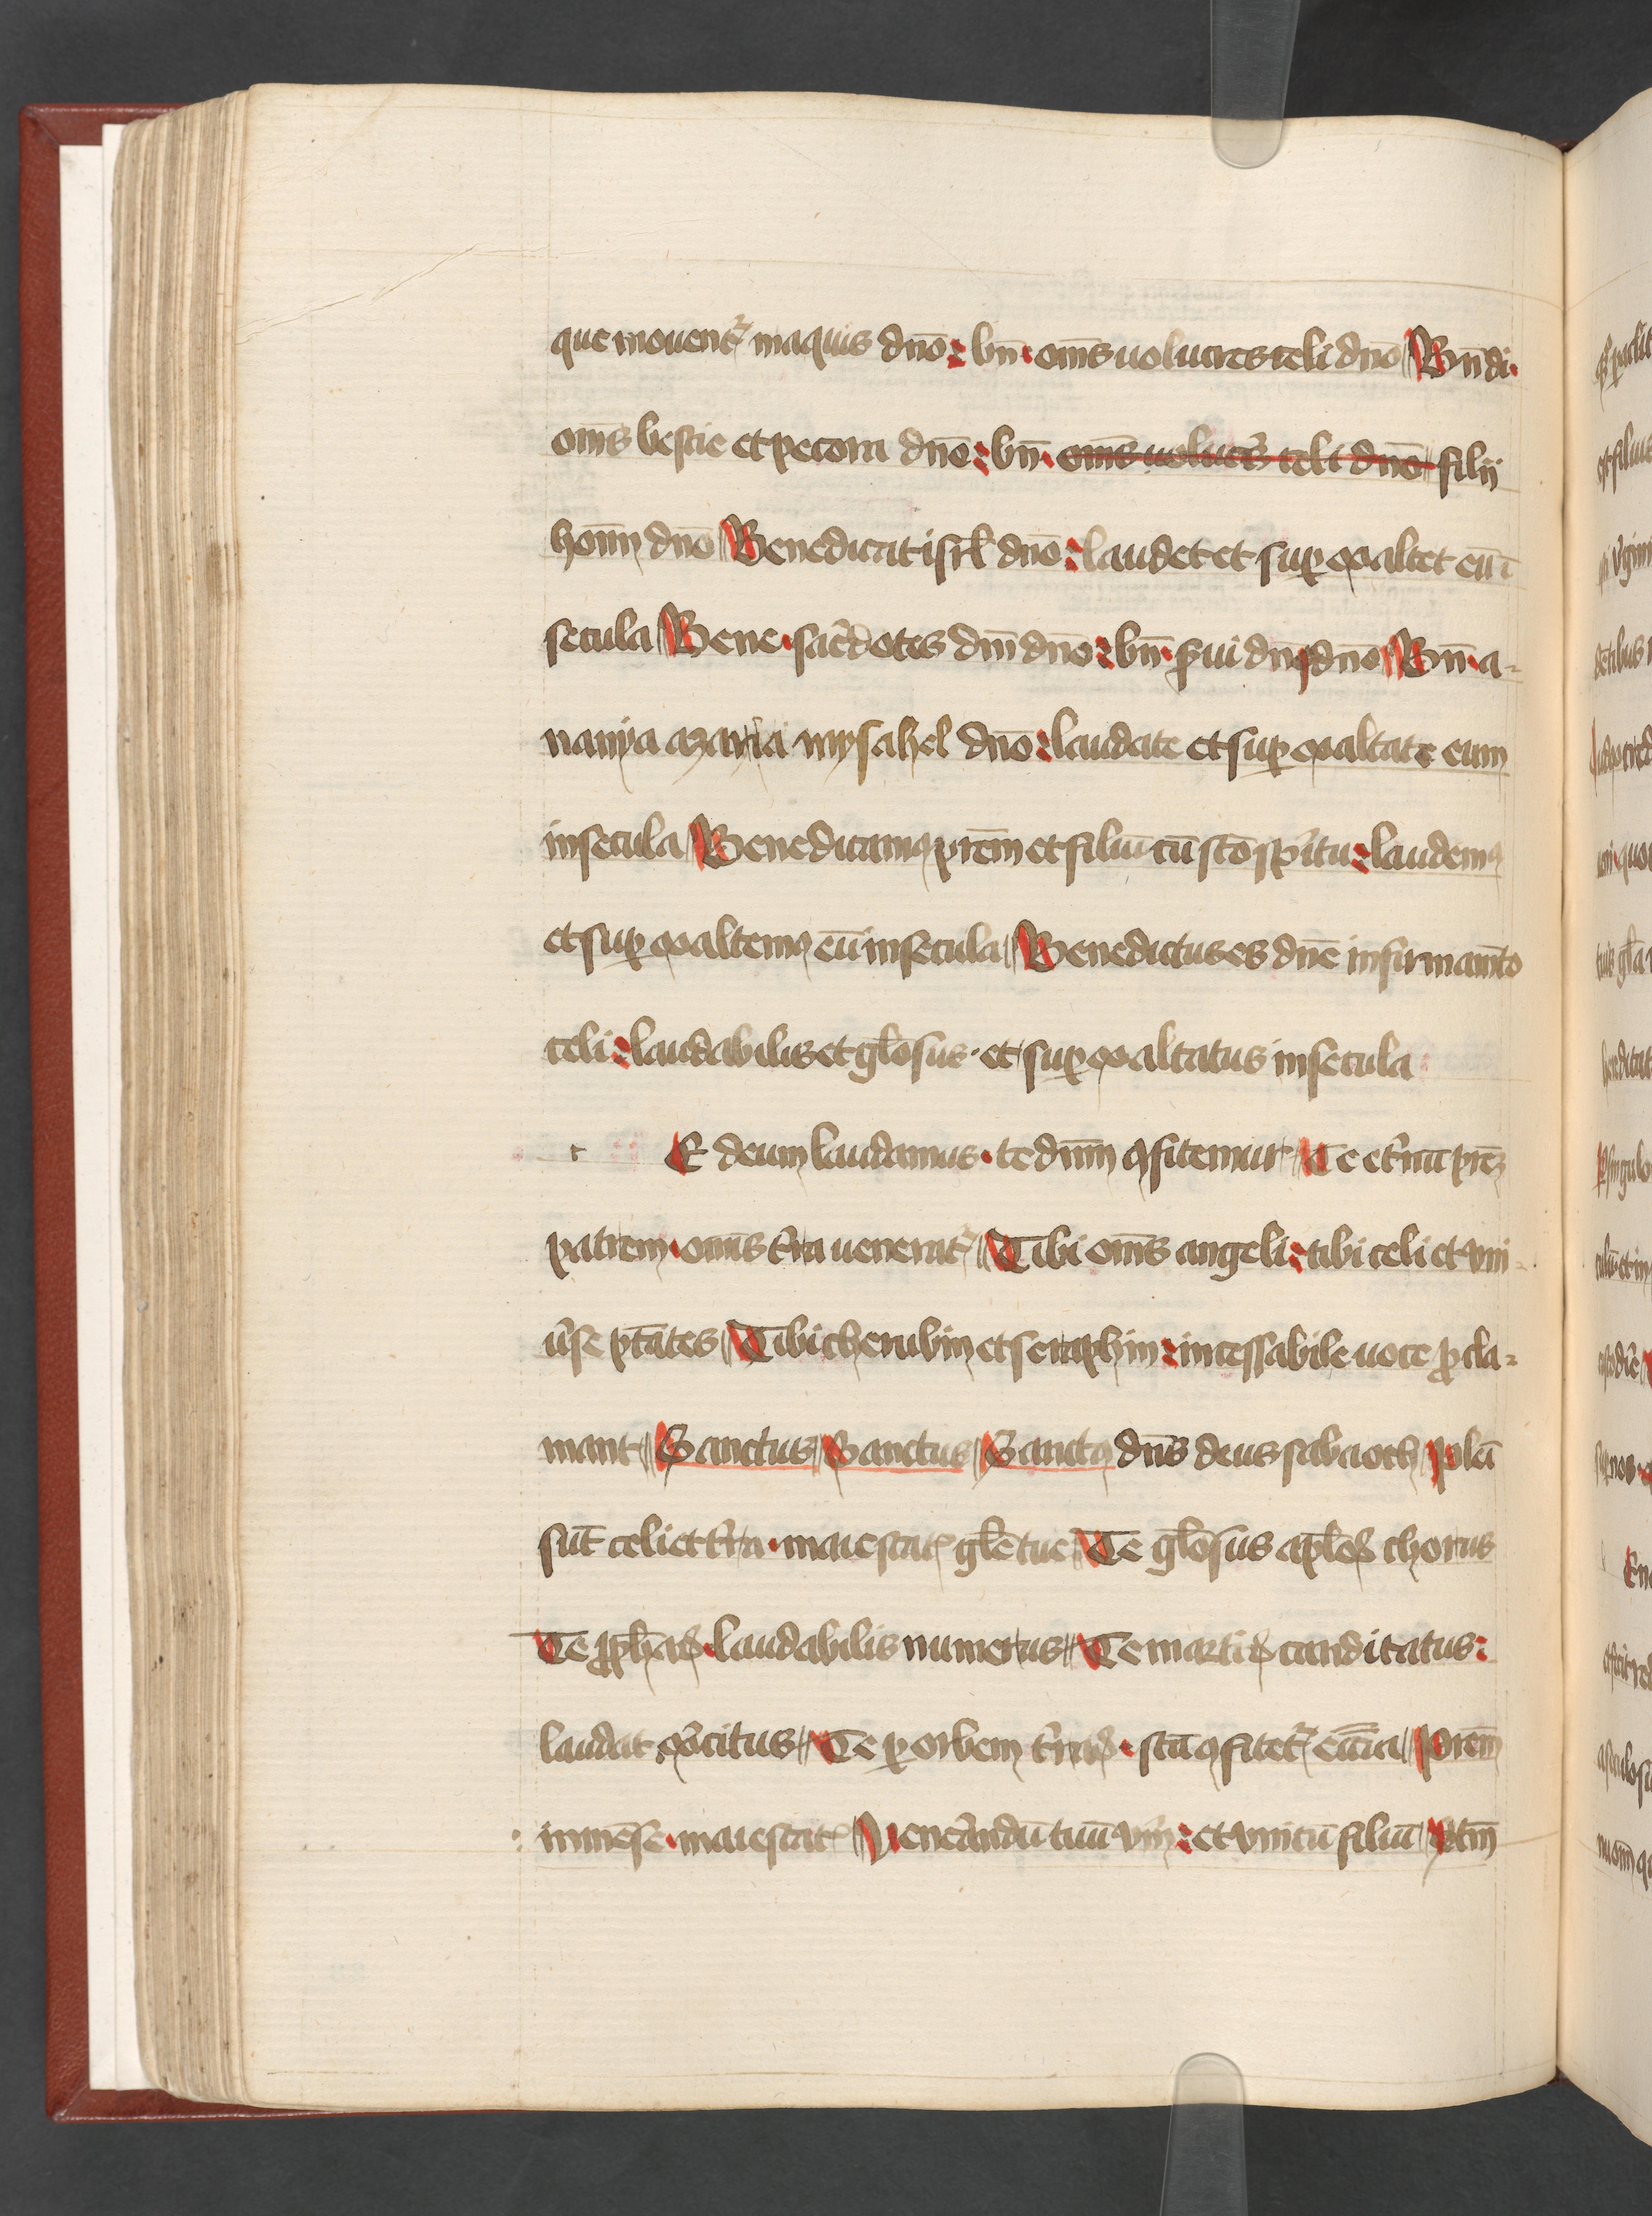 que mouent᷑ in aquis dn̄o : bn̄ · om̄s uolucres celi dn̄o Bn̄di ·
om̄s bestie et pecora dn̄o : bn̄ · om̄s uolucr̄s celi dn̄o filij
hom̄ dn̄o Benedicat isrl̄ dn̄o : laudet et suꝑexaltet eū ī
secula Bene · sac̄dotes dn̄i dn̄o : bn̄ · s̄ui dn̄ꝯ dn̄o Bn̄ · a=
nanya azaria mysahel dn̄o : laudate et suꝑexaltate eum
in secula Benedicamꝯ pr̄em et filiū cū sc̄o sp̄itu : laudemꝯ
et suꝑexaltemꝯ eū in secula Benedictus es dn̄e in firmam̄to
celi : laudabilis et gl̄osus · et suꝑexaltatus in secula
t E deum laudamus · te dn̄m ꝯfitemur Te et̄nū pr̄eꝫ
patrem · om̄is t̄ra uenerat᷑ Tibi om̄s angeli : tibi celi et vni=
ūse pt̄ates Tibi cherubin et seraphin : incessabile uoce ꝓcla=
mant Sanctus Sanctus Sanctꝯ dn̄s deus sabaoth Plēi
sūt celi et t̄ra · maiestatꝭ gl̄e tue Te gl̄osus apl̄oꝝ chorus
Te ꝓph̄aꝝ · laudabilis numerus Te martiꝝ canditatus :
laudat ex̄citus Te ꝑ orbem t̄raꝝ · sc̄a ꝯfitet᷑ eccīa Pr̄em
inmēse · maiestatꝭ Uen̄andū tuū vm̄ : et vnicū filiū Sc̄m